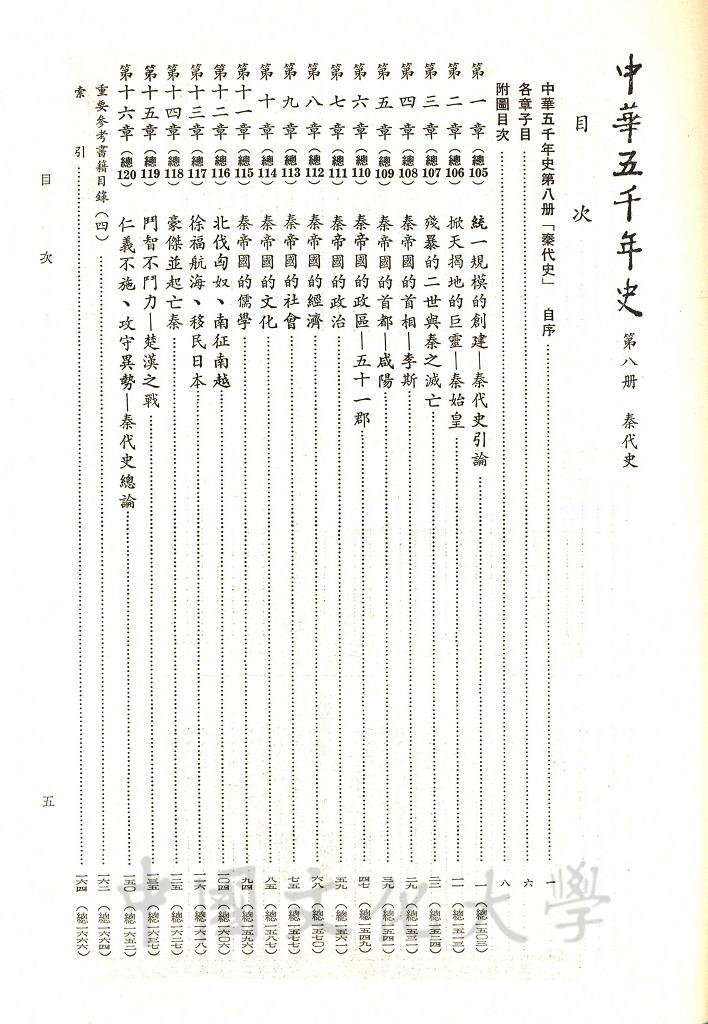 中華五千年史 第八册 秦代史
目次
中華五千年史第八册「秦代史」 自序 一
各章子目 六
附圖目次 八
第一章（總105） 統一規模的創建—秦代史引論 一（總一五〇三）
第二章（總106） 掀天揭地的巨靈—秦始皇 一一（總一五一三）
第三章（總107） 殘暴的二世與秦之滅亡 二二（總一五二四）
第四章（總108） 秦帝國的首相—李斯 二九（總一五三一）
第五章（總109） 秦帝國的首都—咸陽 三九（總一五四一）
第六章（總110） 秦帝國的政區—五十一郡 四七（總一五四九）
第七章（總111） 秦帝國的政治 五九（總一五六一）
第八章（總112） 秦帝國的經濟 六八（總一五七〇）
第九章（總113） 秦帝國的社會 七五（總一五七七）
第十章（總114） 秦帝國的文化 八五（總一五八七）
第十一章（總115） 秦帝國的儒學 九四（總一五九六）
第十二章（總116） 北伐匈奴、南征南越 一〇四（總一六〇六）
第十三章（總117） 徐福航海、移民日本 一一六（總一六一八）
第十四章（總118） 豪傑並起亡秦 一二五（總一六二七）
第十五章（總119） 鬥智不鬥力—楚漢之戰 一三五（總一六三七）
第十六章（總120） 仁義不施、攻守異勢—秦代史總論 一五〇（總一六五二）
重要參考書籍目錄（四） 一六二（總一六六四）
索引 一六四（總一六六六）
目次
五
中國文化大學